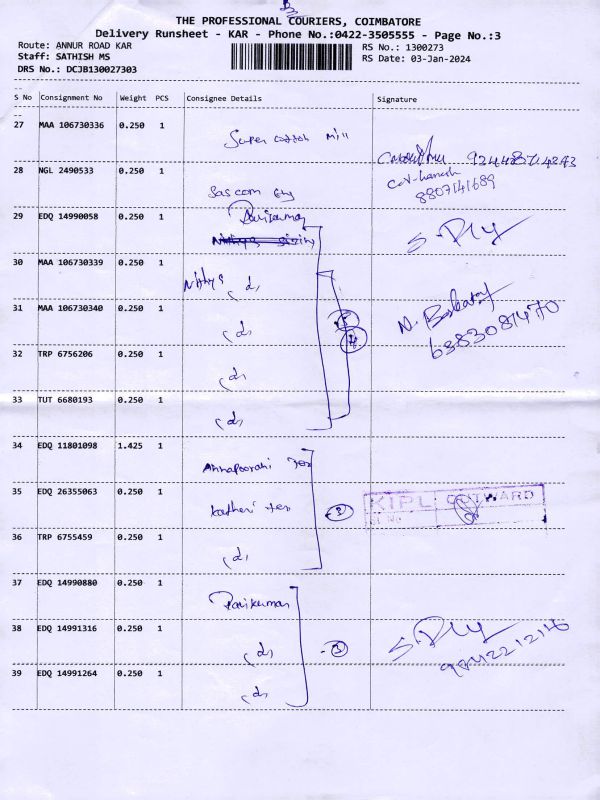 THE PROFESSIONAL COURIERS, COIMBATORE
Delivery Runsheet - KAR - Phone No.:0422-3505555 - Page No.:3
Route: ANNUR ROAD KAR
RS No.: 1300273
Staff: SATHISH MS
RS Date: 03-Jan-2024
DRS No.: DCJB130027303
S No Consignment No Weight PCS Consignee Details Signature
27 MAA 106730336 0.250 1 Super cotton mill
28 NGL 2490533 0.250 1
8807141689
29 EDQ 14990058 0.250 1 Ravikumar
S. Ply
30 MAA 106730339 0.250 1 Nithys (d)
31 MAA 106730340 0.250 1 (d)
6383081470
32 TRP 6756206 0.250 1 (d)
33 TUT 6680193 0.250 1 (d)
34 EDQ 11801098 1.425 1 Annapoorani Tex
35 EDQ 26355063 0.250 1 Kadheri Tex
KIPL OUTWARD
Sl. No
36 TRP 6755459 0.250 1 (d)
37 EDQ 14990880 0.250 1 Ravikumar
38 EDQ 14991316 0.250 1 (d) S. Ply
39 EDQ 14991264 0.250 1 (d)